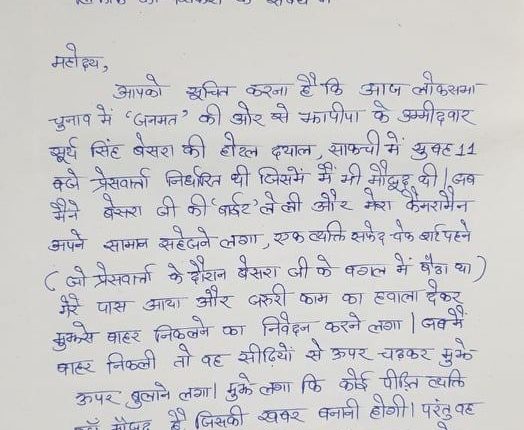 महोदय,
आपको सूचित करना है कि आज लोकसभा
चुनाव में 'जनमत' की ओर से झापीपा के उम्मीदवार
सूर्य सिंह बेसरा की होटल दयाल, साकची में सुबह 11
बजे प्रेसवार्ता निर्धारित थी जिसमें मैं भी मौजूद थी। जब
मैंने बेसरा जी की 'बाईट' ले ली और मेरा कैमरामैन
अपने सामान सहेजने लगा, एक व्यक्ति सफेद चेक शर्ट पहने
(जो प्रेसवार्ता के दौरान बेसरा जी के बगल में बैठा था)
मेरे पास आया और जरुरी काम का हवाला देकर
मुझसे बाहर निकलने का निवेदन करने लगा। जब मैं
बाहर निकली तो वह सीढ़ियों से ऊपर चढकर मुझे
ऊपर बुलाने लगा। मुझे लगा कि कोई पीड़ित व्यक्ति
मौजूद है, जिसकी खबर बनानी होगी। परंतु वह